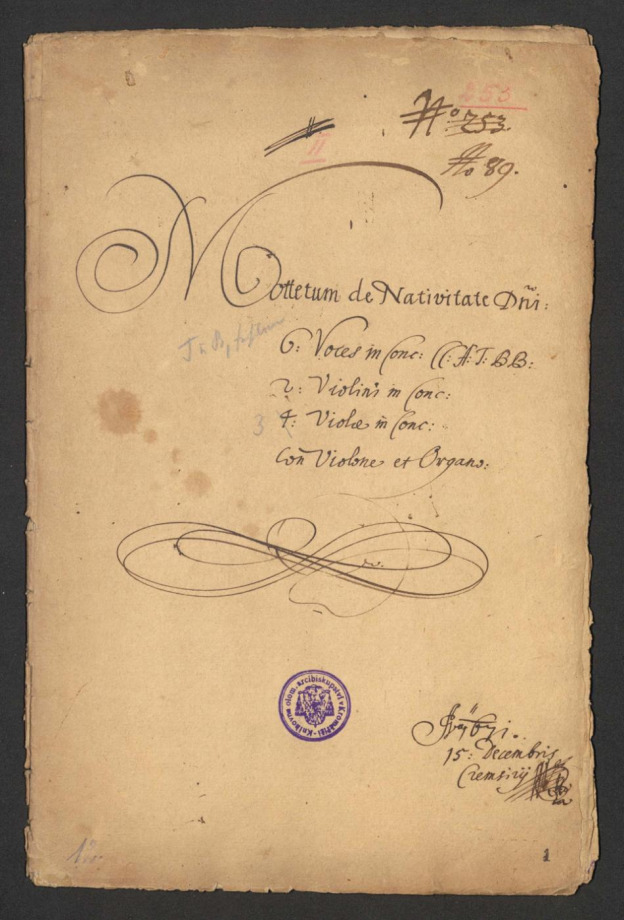 253
No 253.
II
No 89.
Mottetum de Nativitate Dñi:
6: Voces in Conc: CC: A: T: BB:
2: Violini in Conc:
3
4: Violæ in Conc:
Con Violone et Organo:
Knihovna olom. arcibiskupství v Kroměříži
15: Decembris
Cremsirij
1